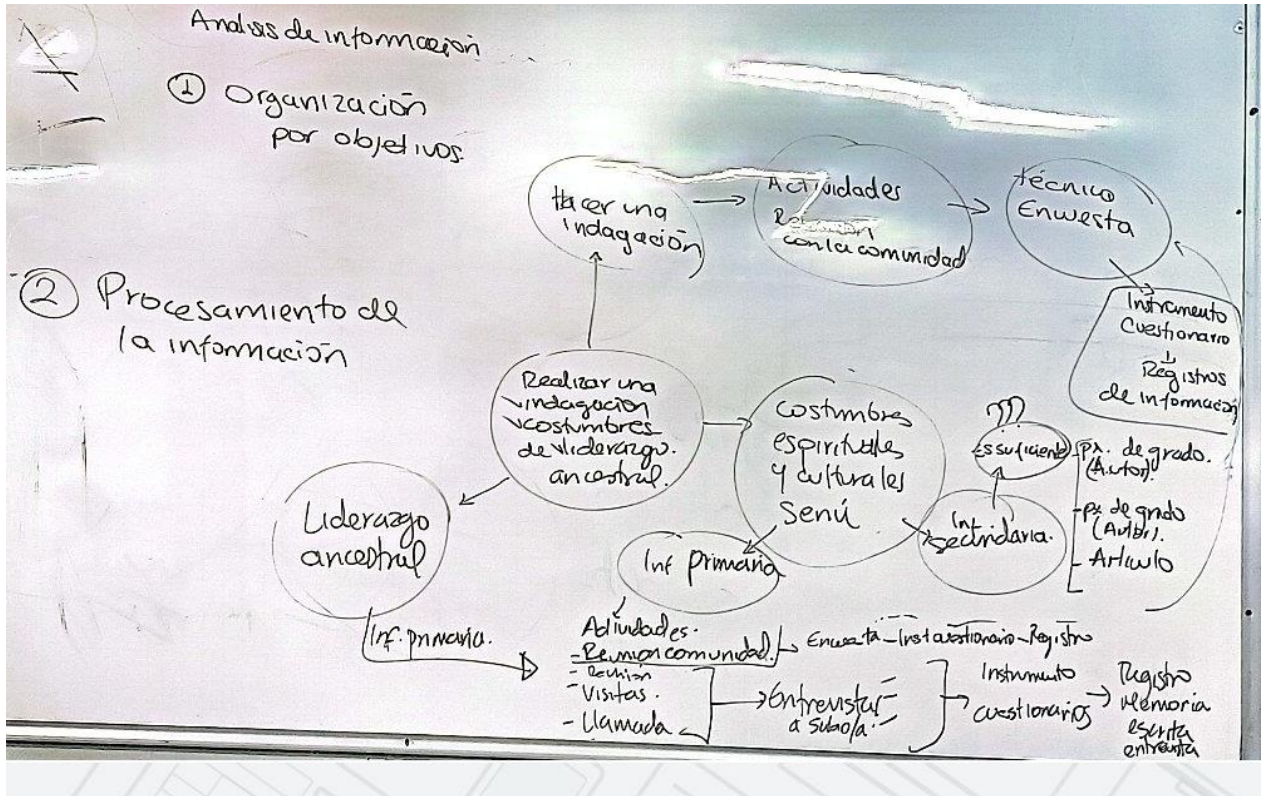 Analisis de información
① Organización
por objetivos.
② Procesamiento de
la información
Hacer una
indagación
Actividades
Reunión
con la comunidad
técnico
Encuesta
Instrumento
Cuestionario
Registros
de información
Realizar una
indagación
costumbres
de liderazgo
ancestral.
Costumbres
espirituales
y culturales
Senú
???
Es suficiente
Inf
secundaria.
px. de grado.
(Autor).
- px de grado
(Autor).
- Artículo
Liderazgo
ancestral
Inf primaria
Inf. primaria.
Actividades.
- Reunion comunidad.
Encuesta - Inst cuestionario - Registro
- Reunión
- Visitas.
- Llamada
Entrevistar
a
Instrumento
cuestionarios
Registro
Memoria
escrita
entrevista